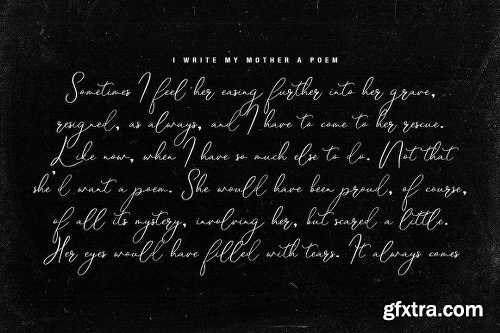 I WRITE MY MOTHER A POEM
Sometimes I feel her easing further into her grave,
resigned, as always, and I have to come to her rescue.
Like now, when I have so much else to do. Not that
she'd want a poem. She would have been proud, of course,
of all its mystery, involving her, but scared a little.
Her eyes would have filled with tears. It always comes
gfxtra.com